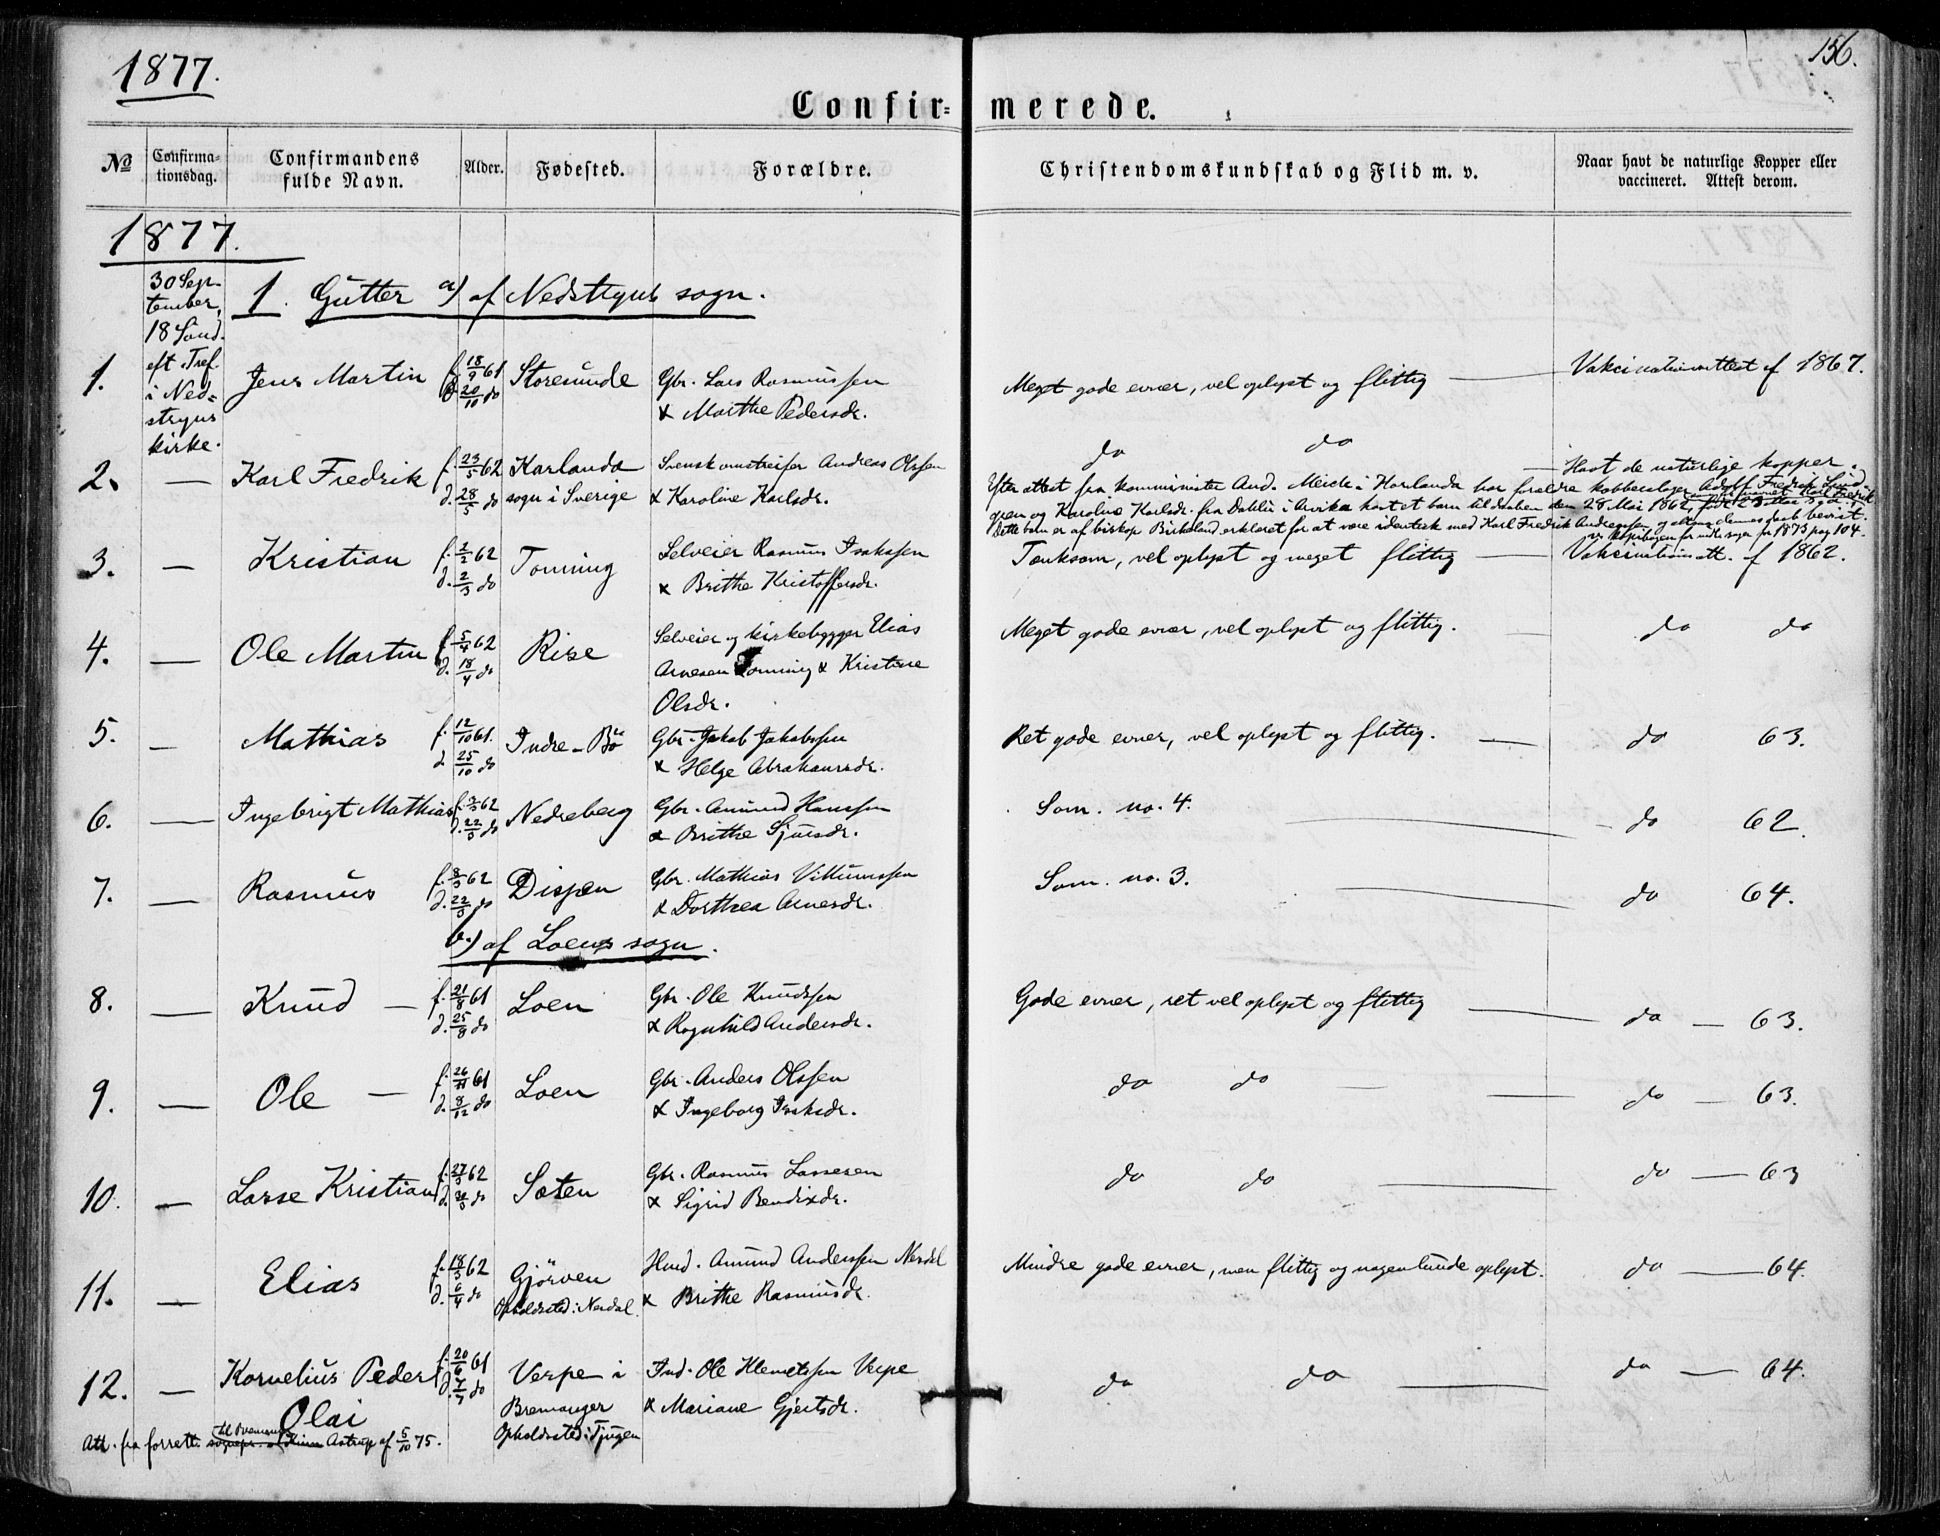 1877.
156.
Confir= merede.
No
Confirma-
tionsdag.
Confirmandens
fulde Navn.
Alder.
Fødested.
Forældre.
Christendomskundskab og Flid m. v.
Naar havt de naturlige Kopper eller
vaccineret. Attest derom.
1877.
30 Sep-
tember,
18 Sönd.
eft. Tref.
i Ned=
stryns
kirke.
1. Gutter a) af Nedstryns sogn.
1. Jens Martin f. 18/9 61 d. 20/10 do Storesunde Gbr. Lars Rasmussen
& Marthe Pedersdr.
Meget gode evner, vel oplyst og flittig — Vakcinationsattest af 1867.
2. — Karl Fredrik f. 23/5 62 d. 28/5 do Karlanda
sogn i Sverige
Svensk omstreifer Andreas Olssen
& Karoline Karlsdr.
do do — Havt de naturlige kopper.
Efter attest fra komminister And. Meich i Karlanda har forældre kobberslager Adolf Fredrik Lind-
gren og Karolina Karlsdr. fra Dahlin i Arvika havt et barn til daaben den 28 Mai 1862, födt 23
Dette barn er af biskop Birkeland erklæret for at være identisk med Karl Fredrik Andreassen, og altsaa dennes daab bevist.
1875 pag 104.
3. — Kristian f. 2/2 62 d. 2/3 do Tonning Selveier Rasmus Isakssen
& Brithe Kristoffersdr.
Tænksom, vel oplyst og meget flittig — Vakcinationsatt. af 1862.
4. — Ole Martin f. 5/4 62 d. 18/4 do Rise Selveier og kirkebygger Elias
Arnesen Tonning & Kristine
Olsdr.
Meget gode evner, vel oplyst og flittig. — do do
5. — Mathias f. 12/10 61. d. 25/10 do Indre-Bö Gbr. Jakob Jakobssen
& Helge Abrahamsdr.
Ret gode evner, vel oplyst og flittig. — do 63.
6. — Ingebrigt Mathias f. 3/3 62 d. 22/3 do Nedreberg Gbr. Amund Hanssen
& Brithe Sjursdr.
Som. no. 4. — do 62.
7. — Rasmus f. 8/3 62 d. 22/3 do Dispen Gbr. Mathias Villumssen
& Dorthea Arnesdr.
Som. no. 3. — do 64.
b.) af Loens sogn.
8. — Knud — f. 21/8 61 d. 25/8 do Loen Gbr. Ole Knudssen
& Ragnhild Andersdr.
Gode evner, ret vel oplyst og flittig — do — 63.
9. — Ole — f. 26/11 61 d. 8/12 do Loen Gbr. Anders Olssen
& Ingeborg Isaksdr.
do do — do — 63.
10. — Lasse Kristian f. 27/3 62 d. 30/3 do Sæten Gbr. Rasmus Lassesen
& Sigrid Bendixdr.
do do — do — 63
11. — Elias f. 18/3 62 d. 6/4 do Gjörven
Opholdssted: Nesdal.
Husd. Amund Anderssen Nesdal
& Brithe Rasmusdr.
Mindre gode evner, men flittig og nogenlunde oplyst. do — 64.
12. — Kornelius Peder
Olai
f. 20/6 61 d. 7/7 do Verpe i
Bremanger
Opholdssted: Tjugen
Ind. Ole Klemetssen Verpe
& Mariane Gjertsdr.
do do — do — 64.
Att. fra forrett. sognepr. til Kinn Astrup af 5/10 75.